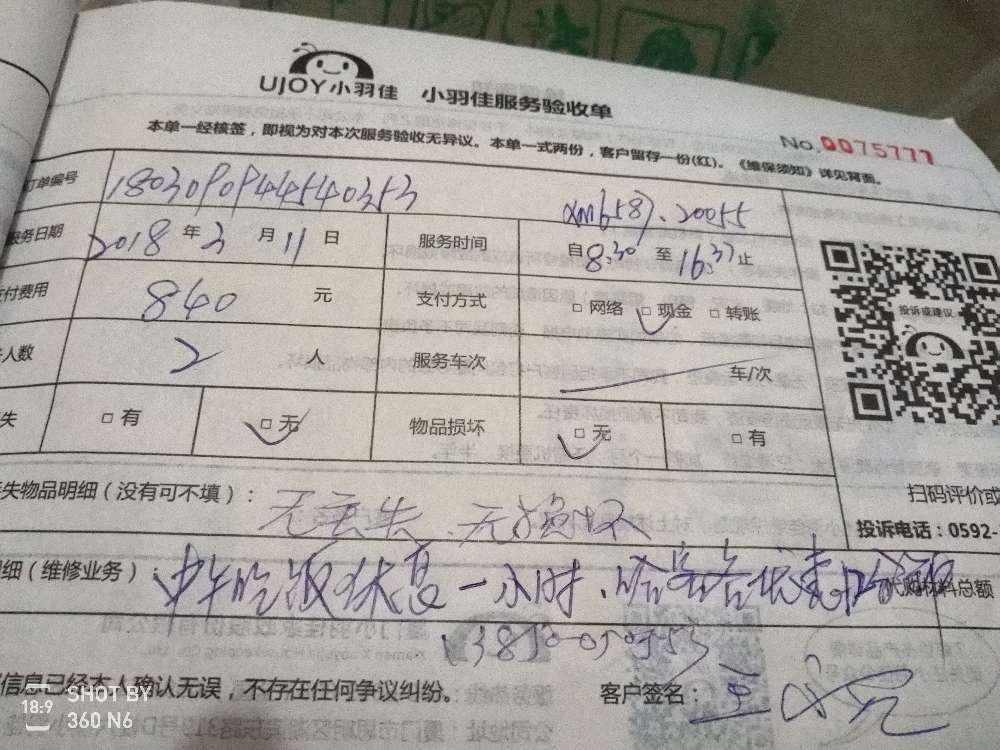 UJOY小羽佳 小羽佳服务验收单
本单一经核签，即视为对本次服务验收无异议。本单一式两份，客户留存一份(红)。《维保须知》详见背面。
No.0075777
订单编号
服务日期 2018 年 3 月 11 日 服务时间 自 8:30 至 16:37 止
付费用 840 元 支付方式 □ 网络 □ 现金 □ 转账
人数 2 人 服务车次 车/次
失 □ 有 □ 无 物品损坏 □ 无 □ 有
投诉或建议
扫码评价或
失物品明细（没有可不填）： 无丢失、无损坏
投诉电话：0592-
细（维修业务）： 中午吃饭休息一小时、
代购材料总额
信息已经本人确认无误，不存在任何争议纠纷。 客户签名：
SHOT BY
18:9
360 N6